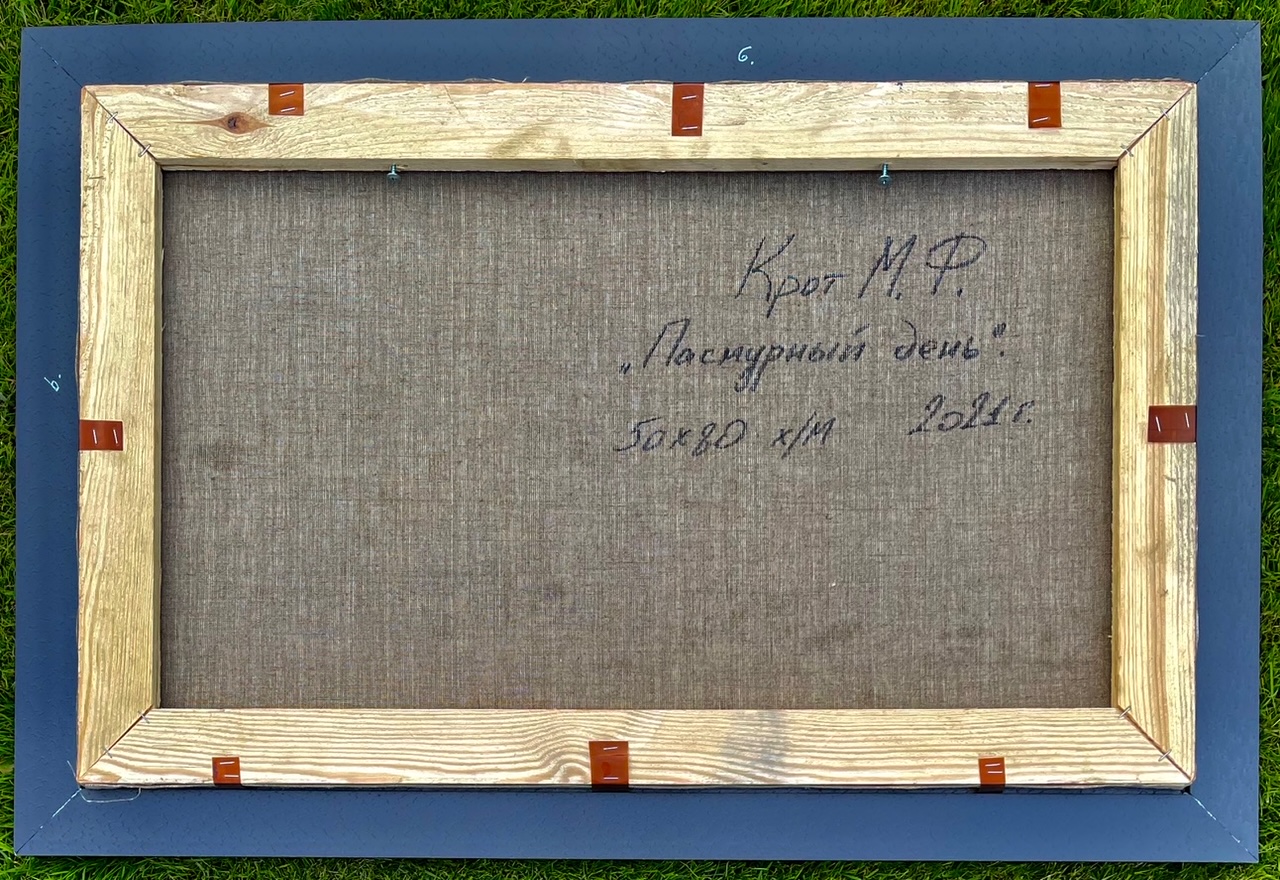 6.
Крот М. Ф.
„Пасмурный день“.
50х80 х/м 2021 г.
6.